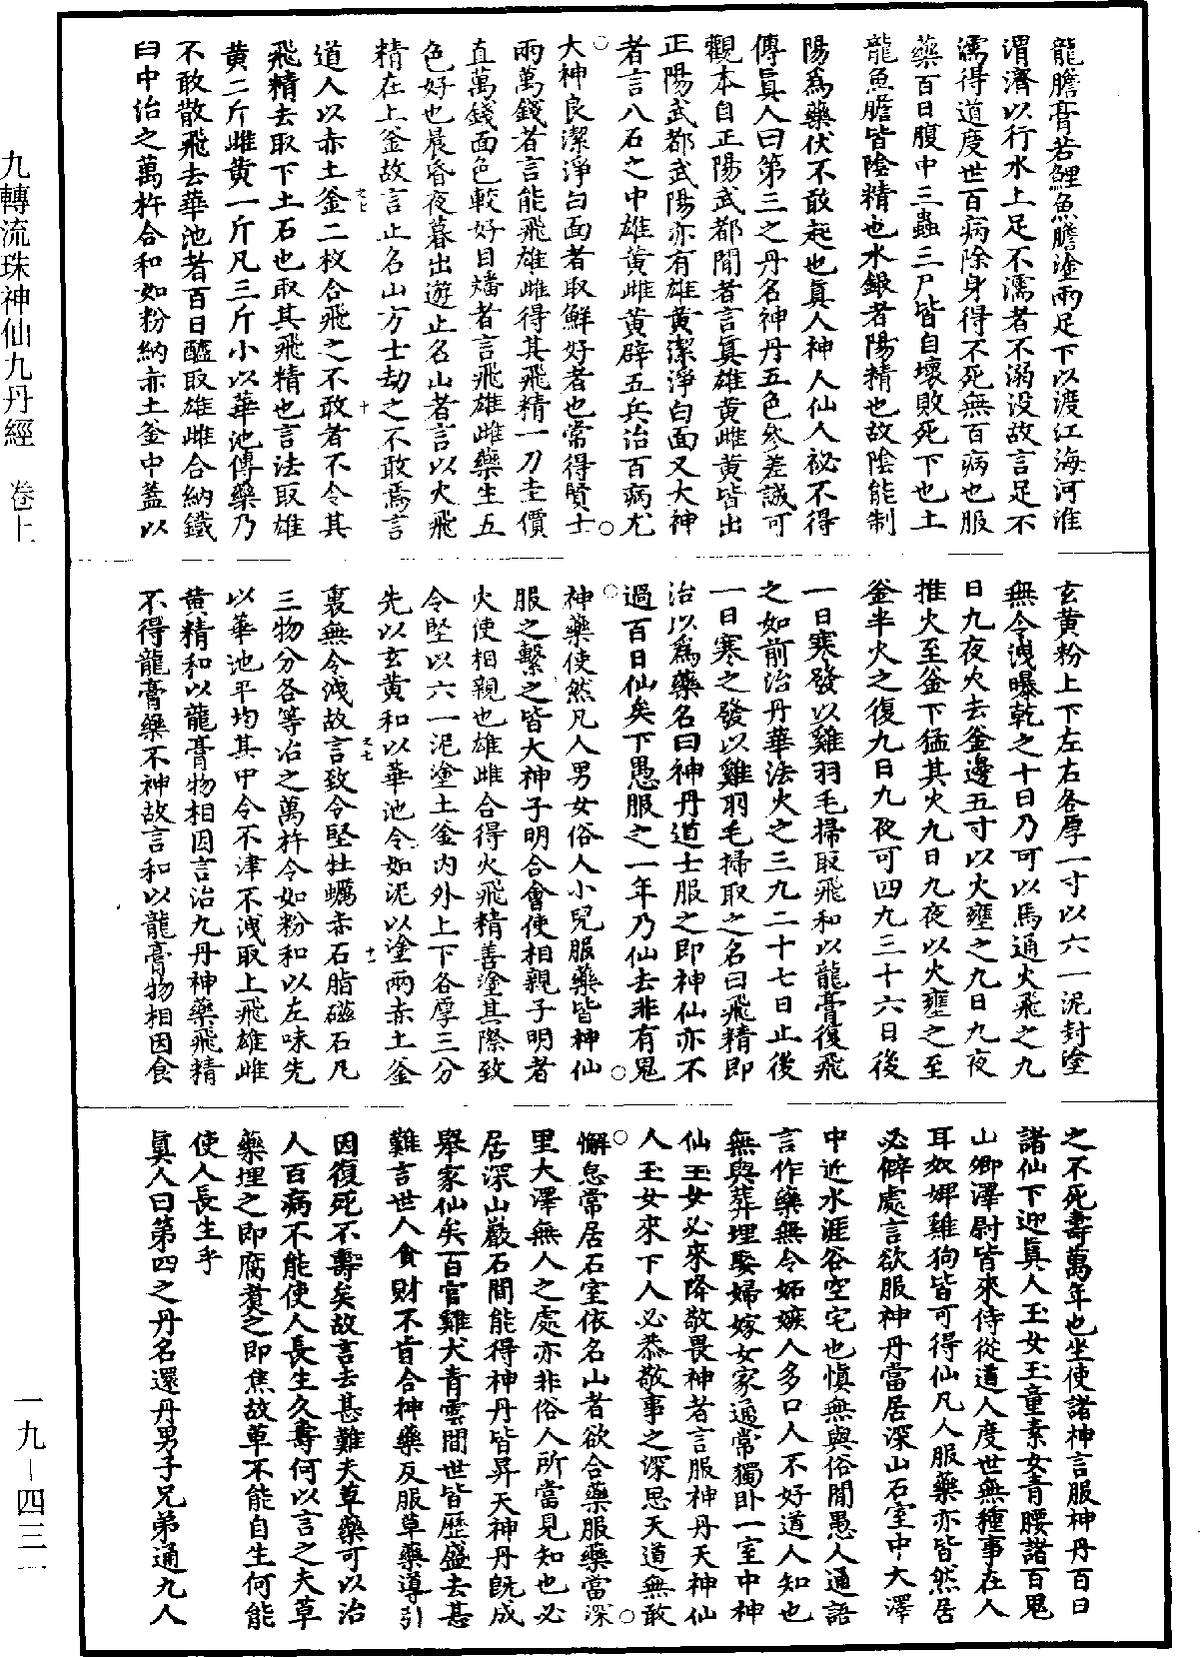 龍膽膏若鯉魚膽塗兩足下以渡江海河淮
渭濟以行水上足不濡者不溺没故言足不
濡得道度世百病除身得不死無百病也服
藥百日腹中三蟲三尸皆自壞敗死下也土
龍魚膽皆陰精也水銀者陽精也故陰能制
陽爲藥伏不敢起也真人神人仙人祕不得
傳真人曰第三之丹名神丹五色參差誠可
觀本自正陽武都間者言真雄黄雌黄皆出
正陽武都武陽亦有雄黄潔淨白面又大神
者言八石之中雄黄雌黄辟五兵治百病尤
大神良潔淨白面者取鮮好者也常得賢士
兩萬錢者言能飛雄雌得其飛精一刀圭價
直萬錢面色較好目皤者言飛雄雌藥生五
色好也晨昏夜暮出遊止名山者言以火飛
精在上釜故言止名山方士劫之不敢焉言
道人以赤土釜二枚合飛之不敢者不令其
飛精去取下土石也取其飛精也言法取雄
黄二斤雌黄一斤凡三斤小以華池傳藥乃
不敢散飛去華池者百日醯取雄雌合納鐵
臼中治之萬杵合和如粉納赤土釜中蓋以
玄黄粉上下左右各厚一寸以六一泥封塗
無令洩曝乾之十日乃可以馬通火飛之九
日九夜火去釜邊五寸以火壅之九日九夜
推火至釜下猛其火九日九夜以火壅之至
釜半火之復九日九夜可四九三十六日後
一日寒發以雞羽毛掃取飛和以龍膏復飛
之如前治丹華法火之三九二十七日止後
一日寒之發以雞羽毛掃取之名曰飛精即
治以爲藥名曰神丹道士服之即神仙亦不
過百日仙矣下愚服之一年乃仙去非有鬼
神藥使然凡人男女俗人小兒服藥皆神仙
服之繫之皆大神子明合會使相親子明者
火使相親也雄雌合得火飛精善塗其際致
令堅以六一泥塗土釜内外上下各厚三分
先以玄黄和以華池令如泥以塗兩赤土釜
裏無令洩故言致令堅牡蠣赤石脂磁石凡
三物分各等治之萬杵令如粉和以左味先
以華池平均其中令不津不洩取上飛雄雌
黄精和以龍膏物相因言治九丹神藥飛精
不得龍膏藥不神故言和以龍膏物相因食
之不死壽萬年也坐使諸神言服神丹百日
諸仙下迎真人玉女玉童素女青腰諸百鬼
山卿澤尉皆來侍從道人度世無種事在人
耳奴婢雞狗皆可得仙凡人服藥亦皆然居
必僻處言欲服神丹當居深山石室中大澤
中近水涯谷空宅也慎無與俗間愚人通語
言作藥無令妬嫉人多口人不好道人知也
無與葬埋娶婦嫁女家通常獨卧一室中神
仙玉女必來降敬畏神者言服神丹天神仙
人玉女來下人必恭敬事之深思天道無敢
懈怠常居石室依名山者欲合藥服藥當深
里大澤無人之處亦非俗人所當見知也必
居深山巖石間能得神丹皆昇天神丹既成
舉家仙矣百官雞犬青雲間世皆歷盛去甚
難言世人貪財不肯合神藥反服草藥導引
因復死不壽矣故言去甚難夫草藥可以治
人百病不能使人長生久壽何以言之夫草
藥埋之即腐煑之即焦故草不能自生何能
使人長生乎
真人曰第四之丹名還丹男子兄弟通九人
九轉流珠神仙九丹經 卷上
一九－四三一